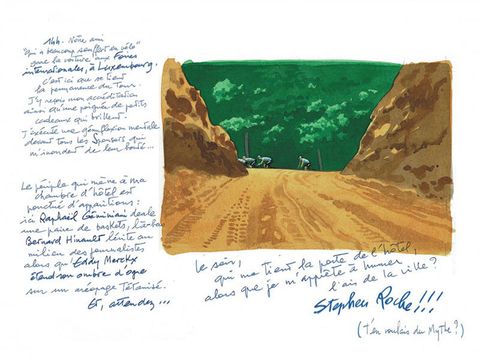 14h. Notre ami
"qui a beaucoup souffert en vélo"
gare la voiture aux Foires
internationales, à Luxembourg,
c'est ici que se tient
la permanence du Tour.
J'y reçois mon accréditation
ainsi qu'une poignée de petits
cadeaux qui brillent.
J'exécute une génuflexion mentale
devant tous les Sponsors qui
m'inondent de leur bonté...
Le périple qui mène à ma
chambre d'hôtel est
ponctué d'apparitions :
ici Raphaël Géminiani deale
une paire de baskets, là-bas
Bernard Hinault lévite au
milieu des journalistes
alors qu'Eddy Merckx
étend son ombre d'ogre
sur un aréopage tétanisé.
Et, attendez...
Le soir,
qui me tient la porte de l'hôtel,
alors que je m'apprête à humer
l'air de la ville ?
Stephen Roche!!!
(T'en voulais du Mythe ?)